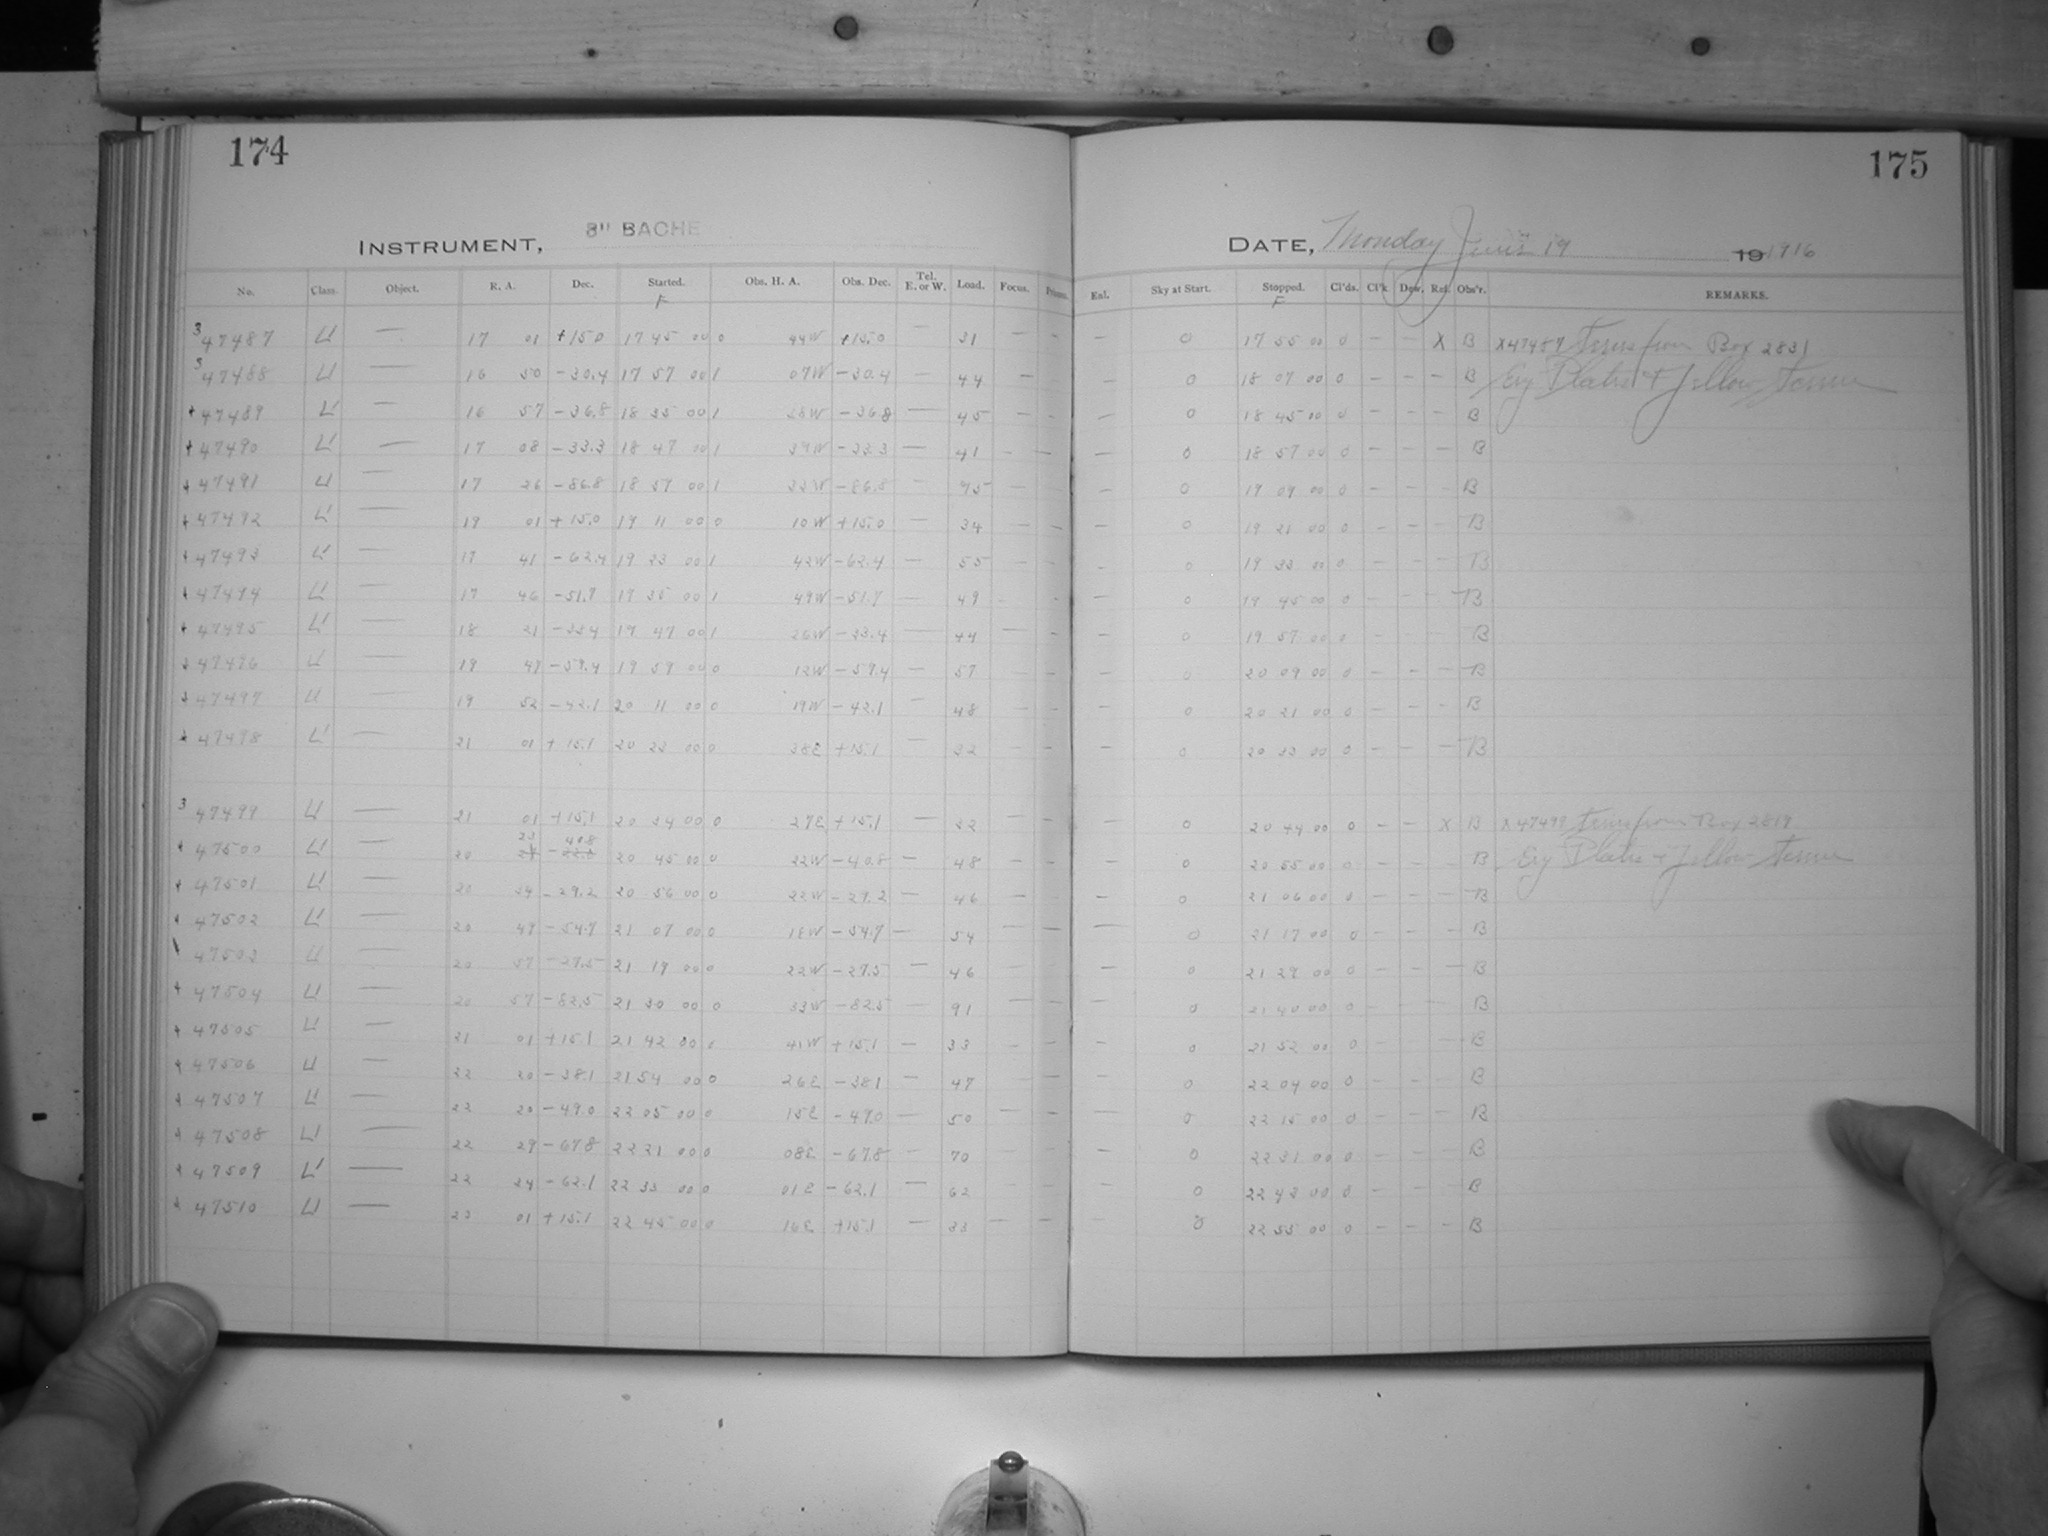 174
175
INSTRUMENT, 8" BACHE
DATE, Monday June 19 19 1916
No. Class. Object. R. A. Dec. Started. Obs. H. A. Obs. Dec. Tel. E. or W. Load. Focus. Prisms. Enl. Sky at Start. Stopped. Cl'ds. Cl'k Dew. Ref. Obs'r. REMARKS.
F F
3 47487 L' — 17 01 +15.0 17 45 00 0 44W +15.0 — 31 — — — 0 17 55 00 0 — — X B X47487 from Box 2831
3 47488 L' — 16 50 -30.4 17 57 00 1 07W -30.4 — 44 — — — 0 18 07 00 0 — — — B Plates + Yellow
47489 L' — 16 57 -36.8 18 35 00 1 38W -36.8 — 45 — — — 0 18 45 00 0 — — — B
47490 L' — 17 08 -33.3 18 47 00 1 39W -33.3 — 41 — — — 0 18 57 00 0 — — — B
47491 L' — 17 26 -86.8 18 59 00 1 33W -86.8 — 95 — — — 0 19 09 00 0 — — — B
47492 L' — 19 01 +15.0 19 11 00 0 10W +15.0 — 34 — — — 0 19 21 00 0 — — — B
47493 L' — 17 41 -62.4 19 23 00 1 42W -62.4 — 55 — — — 0 19 33 00 0 — — — B
47494 L' — 17 46 -51.7 19 35 00 1 49W -51.7 — 49 — — — 0 19 45 00 0 — — — B
47495 L' — 18 21 -33.4 19 47 00 1 26W -33.4 — 44 — — — 0 19 57 00 0 — — — B
47496 L' — 19 47 -59.4 19 59 00 0 12W -59.4 — 57 — — — 0 20 09 00 0 — — — B
47497 L' — 19 52 -42.1 20 11 00 0 19W -42.1 — 48 — — — 0 20 21 00 0 — — — B
47498 L' — 21 01 +15.1 20 23 00 0 38E +15.1 — 32 — — — 0 20 33 00 0 — — — B
3 47499 L' — 21 01 +15.1 20 34 00 0 27E +15.1 — 32 — — — 0 20 44 00 0 — — X B X47499 from Box 2819
23 40.8
47500 L' — 20 45 00 0 22W -40.8 — 48 — — — 0 20 55 00 0 — — — B Plates + Yellow
47501 L' — 20 34 -29.2 20 56 00 0 22W -29.2 — 46 — — — 0 21 06 00 0 — — — B
47502 L' — 20 49 -54.7 21 07 00 0 18W -54.7 — 54 — — — 0 21 17 00 0 — — — B
47503 L' — 20 57 -27.5 21 19 00 0 22W -27.5 — 46 — — — 0 21 29 00 0 — — — B
47504 L' — 20 57 -82.5 21 30 00 0 33W -82.5 — 91 — — — 0 21 40 00 0 — — — B
47505 L' — 21 01 +15.1 21 42 00 0 41W +15.1 — 33 — — — 0 21 52 00 0 — — B
47506 L' — 22 20 -38.1 21 54 00 0 26E -38.1 — 47 — — — 0 22 04 00 0 — — — B
47507 L' — 22 20 -49.0 22 05 00 0 15E -49.0 — 50 — — — 0 22 15 00 0 — — — B
47508 L' — 22 29 -67.8 22 21 00 0 08E -67.8 — 70 — — — 0 22 31 00 0 — — — B
47509 L' — 22 34 -62.1 22 33 00 0 01E -62.1 — 62 — — — 0 22 43 00 0 — — — B
47510 L' — 23 01 +15.1 22 45 00 0 16E +15.1 — 33 — — — 0 22 55 00 0 — — — B